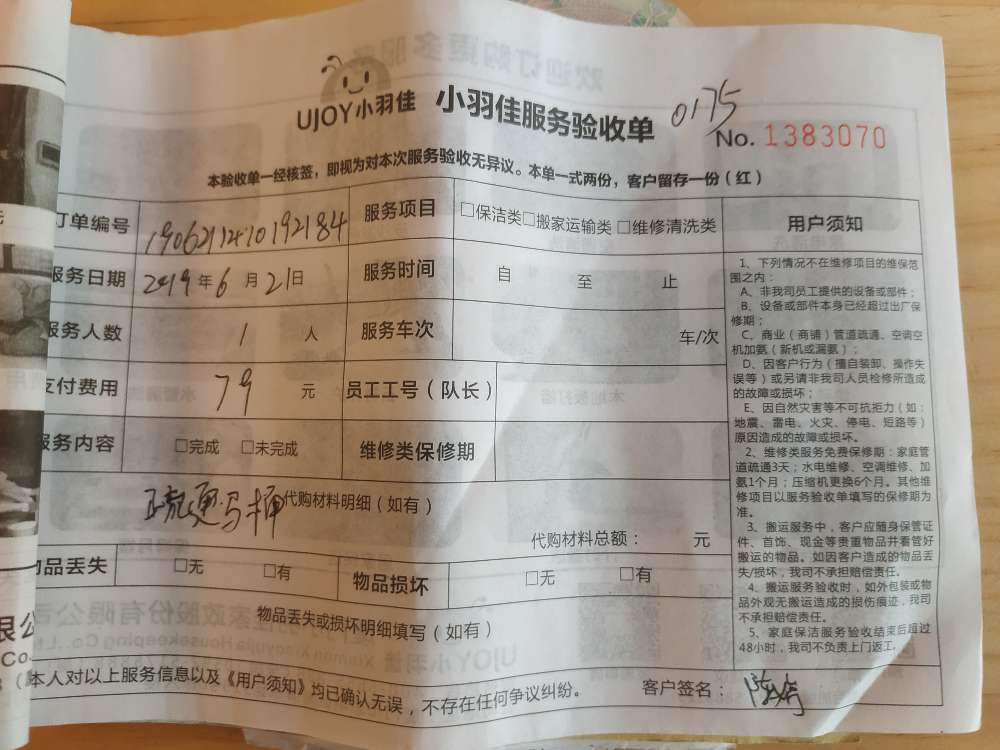 UJOY小羽佳 小羽佳服务验收单 0175
No. 1383070
本验收单一经核签，即视为对本次服务验收无异议。本单一式两份，客户留存一份（红）
订单编号 服务项目 □保洁类□搬家运输类 □维修清洗类 用户须知
服务日期 2019 年 6 月 21 日 服务时间 自 至 止
服务人数 1 人 服务车次 车/次
支付费用 79 元 员工工号（队长）
服务内容 □完成 □未完成 维修类保修期
马桶 代购材料明细（如有）
代购材料总额： 元
物品丢失 □无 □有 物品损坏 □无 □有
物品丢失或损坏明细填写（如有）
1、下列情况不在维修项目的维保范
围之内：
A、非我司员工提供的设备或部件；
B、设备或部件本身已经超过出厂保
修期；
C、商业（商铺）管道疏通、空调空
机加氨（新机或漏氨）；
D、因客户行为（擅自装卸、操作失
误等）或另请非我司人员检修所造成
的故障或损坏；
E、因自然灾害等不可抗拒力（如：
地震、雷电、火灾、停电、短路等）
原因造成的故障或损坏。
2、维修类服务免费保修期：家庭管
道疏通3天；水电维修、空调维修、加
氨1个月；压缩机更换6个月。其他维
修项目以服务验收单填写的保修期为
准。
3、搬运服务中，客户应随身保管证
件、首饰、现金等贵重物品并看管好
搬运的物品。如因客户造成的物品丢
失/损坏，我司不承担赔偿责任。
4、搬运服务验收时，如外包装或物
品外观无搬运造成的损伤痕迹，我司
不承担赔偿责任。
5、家庭保洁服务验收结束后超过
48小时，我司不负责上门返工。
本人对以上服务信息以及《用户须知》均已确认无误，不存在任何争议纠纷。 客户签名：